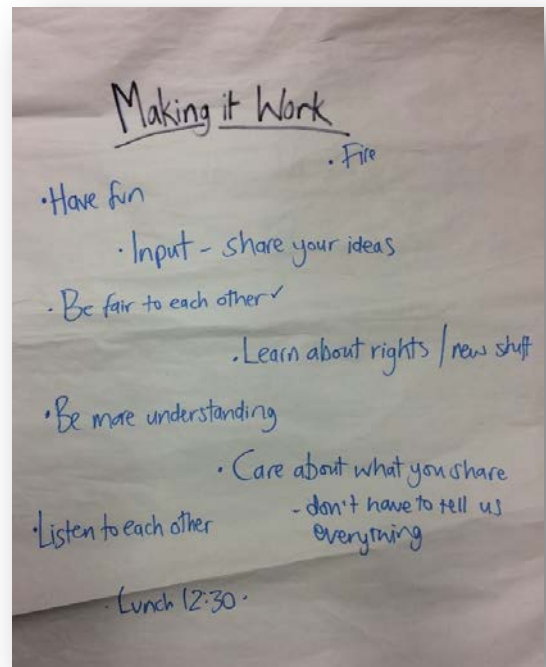 Making it Work
• Fire
• Have fun
• Input - share your ideas
• Be fair to each other ✓
• Learn about rights / new stuff
• Be more understanding
• Care about what you share
- don't have to tell us
everything
• Listen to each other
• Lunch 12:30 •